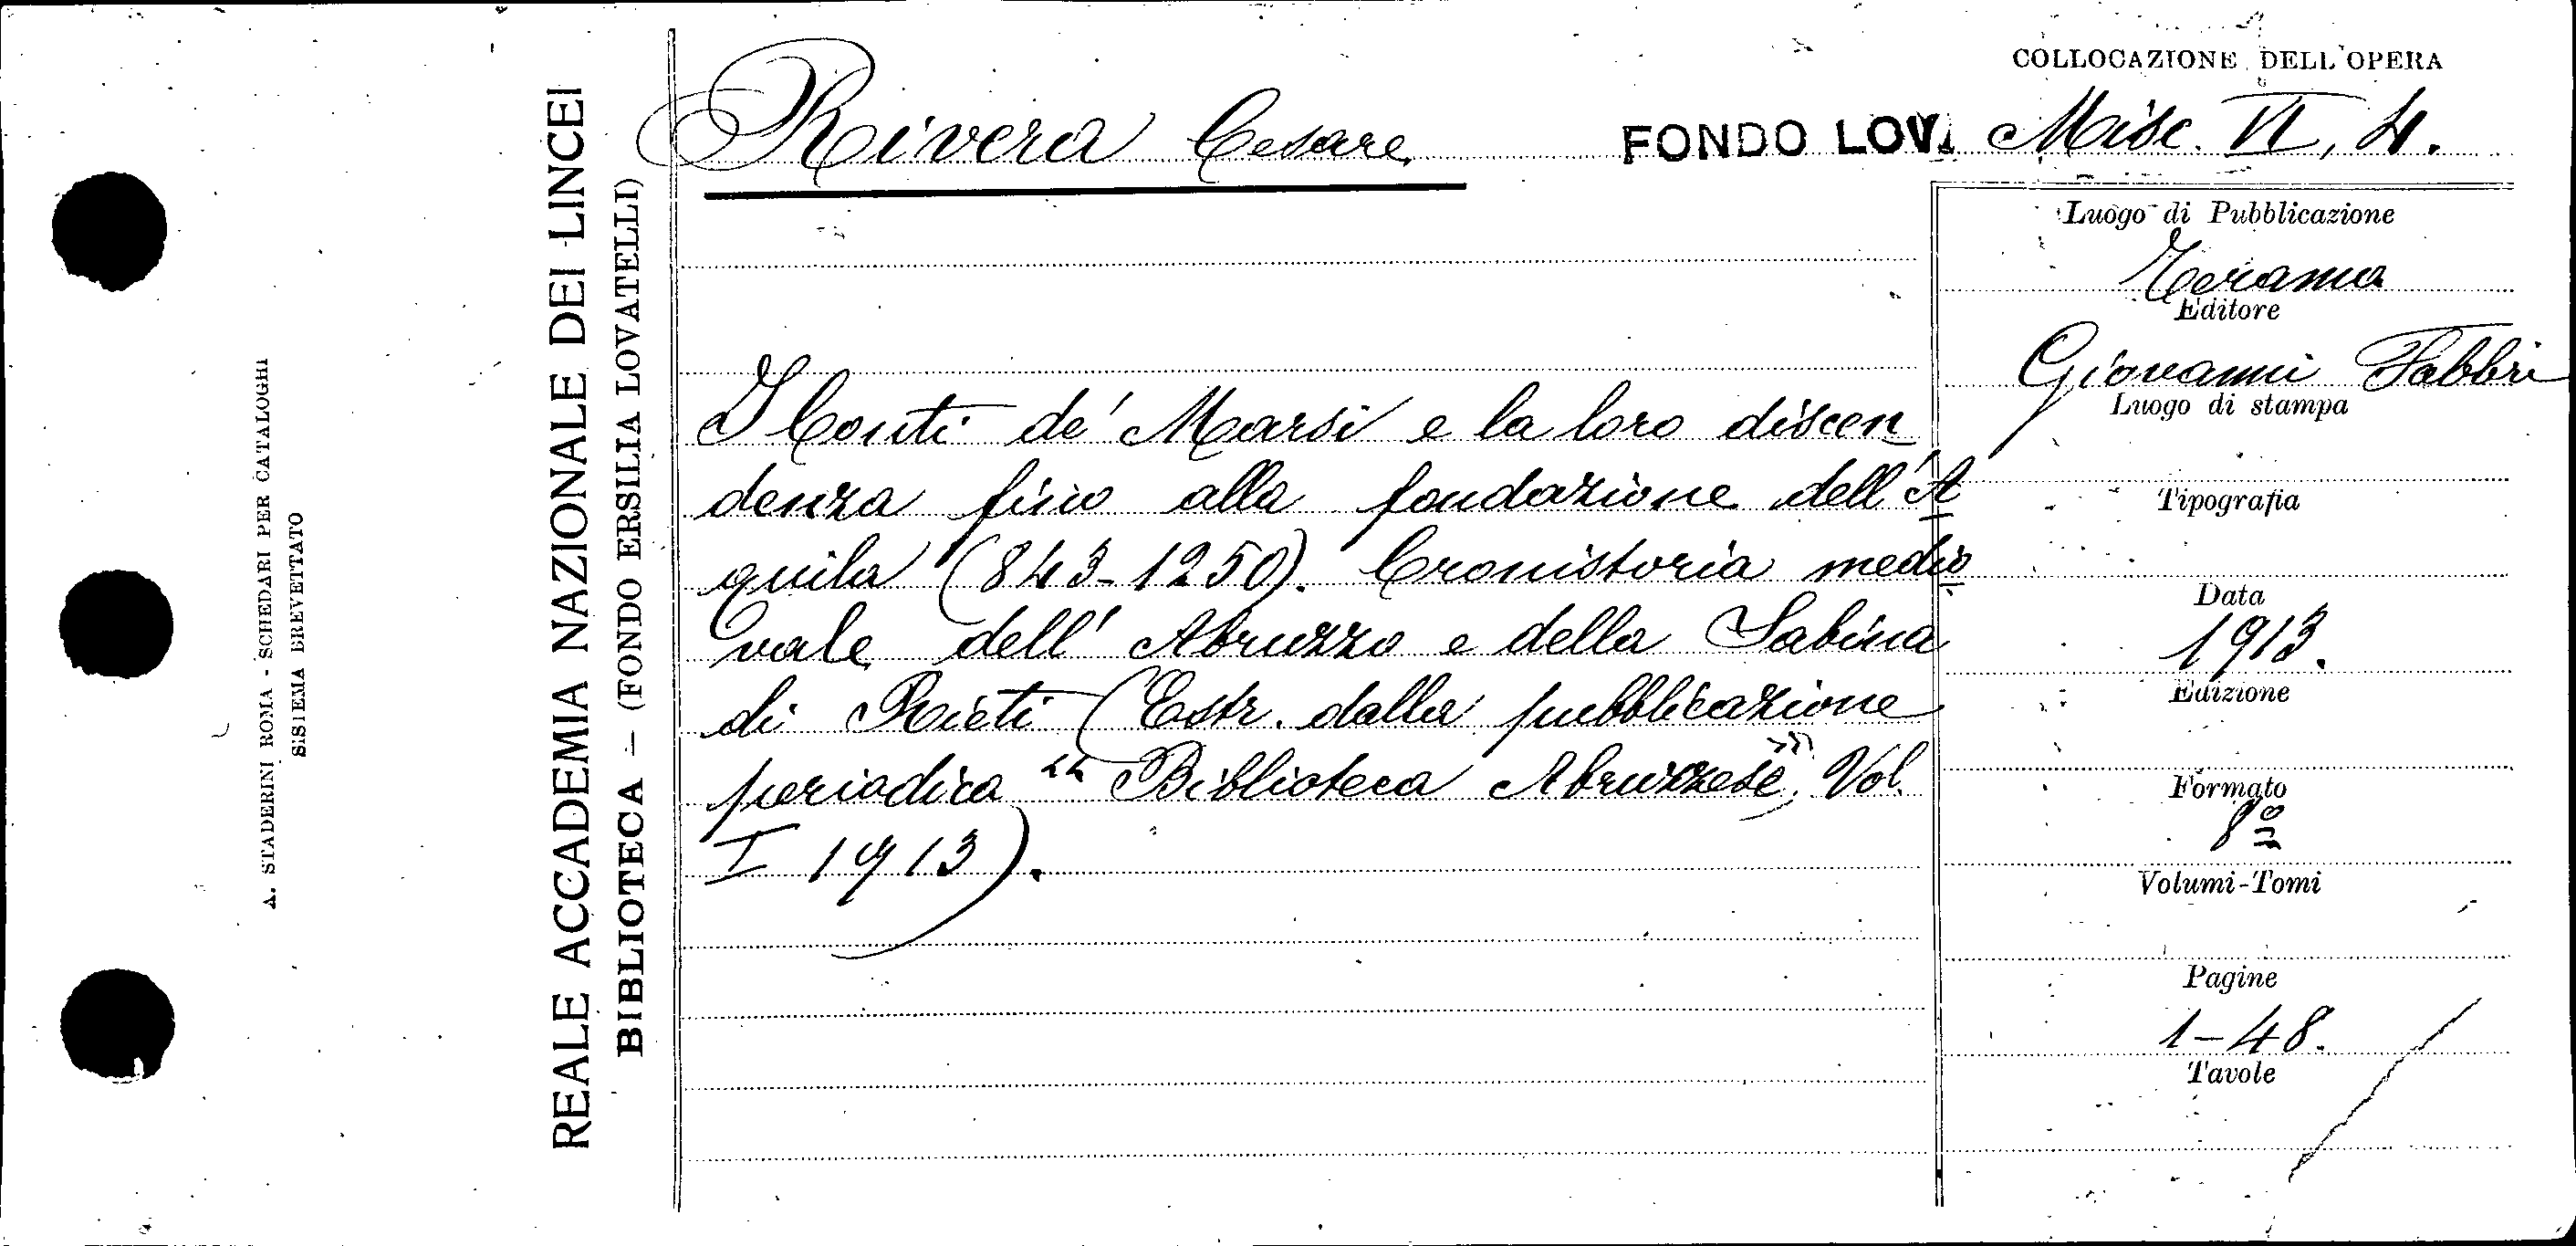 A. STADERINI ROMA - SCHEDARI PER CATALOGHI
SISTEMA BREVETTATO
REALE ACCADEMIA NAZIONALE DEI LINCEI
BIBLIOTECA — (FONDO ERSILIA LOVATELLI)
COLLOCAZIONE DELL'OPERA
Rivera Cesare FONDO LOV. Misc. VI, 4.
I Conti de' Marsi e la loro discen
denza fino alla fondazione dell'A
quila (843-1250). Cronistoria medio
vale dell' Abruzzo e della Sabina
di Rieti (Estr. dalla pubblicazione
periodica "Biblioteca Abruzzese", Vol.
I 1913).
Luogo di Pubblicazione
Teramo
Editore
Giovanni Fabbri
Luogo di stampa
Tipografia
Data
1913.
Edizione
Formato
8º
Volumi-Tomi
Pagine
1-48.
Tavole